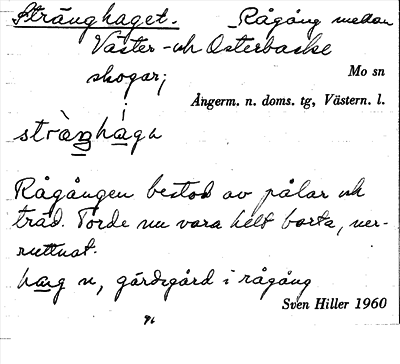 Stränghaget. Rågång mellan
Väster- och Österbacke
skogar; Mo sn
Ångerm. n. doms. tg, Västern. l.
stràŋhàga
Rågången bestod av pålar och
tråd. Torde nu vara helt borta, ner-
ruttnat.
hag n, gärdsgård i rågång
Sven Hiller 1960